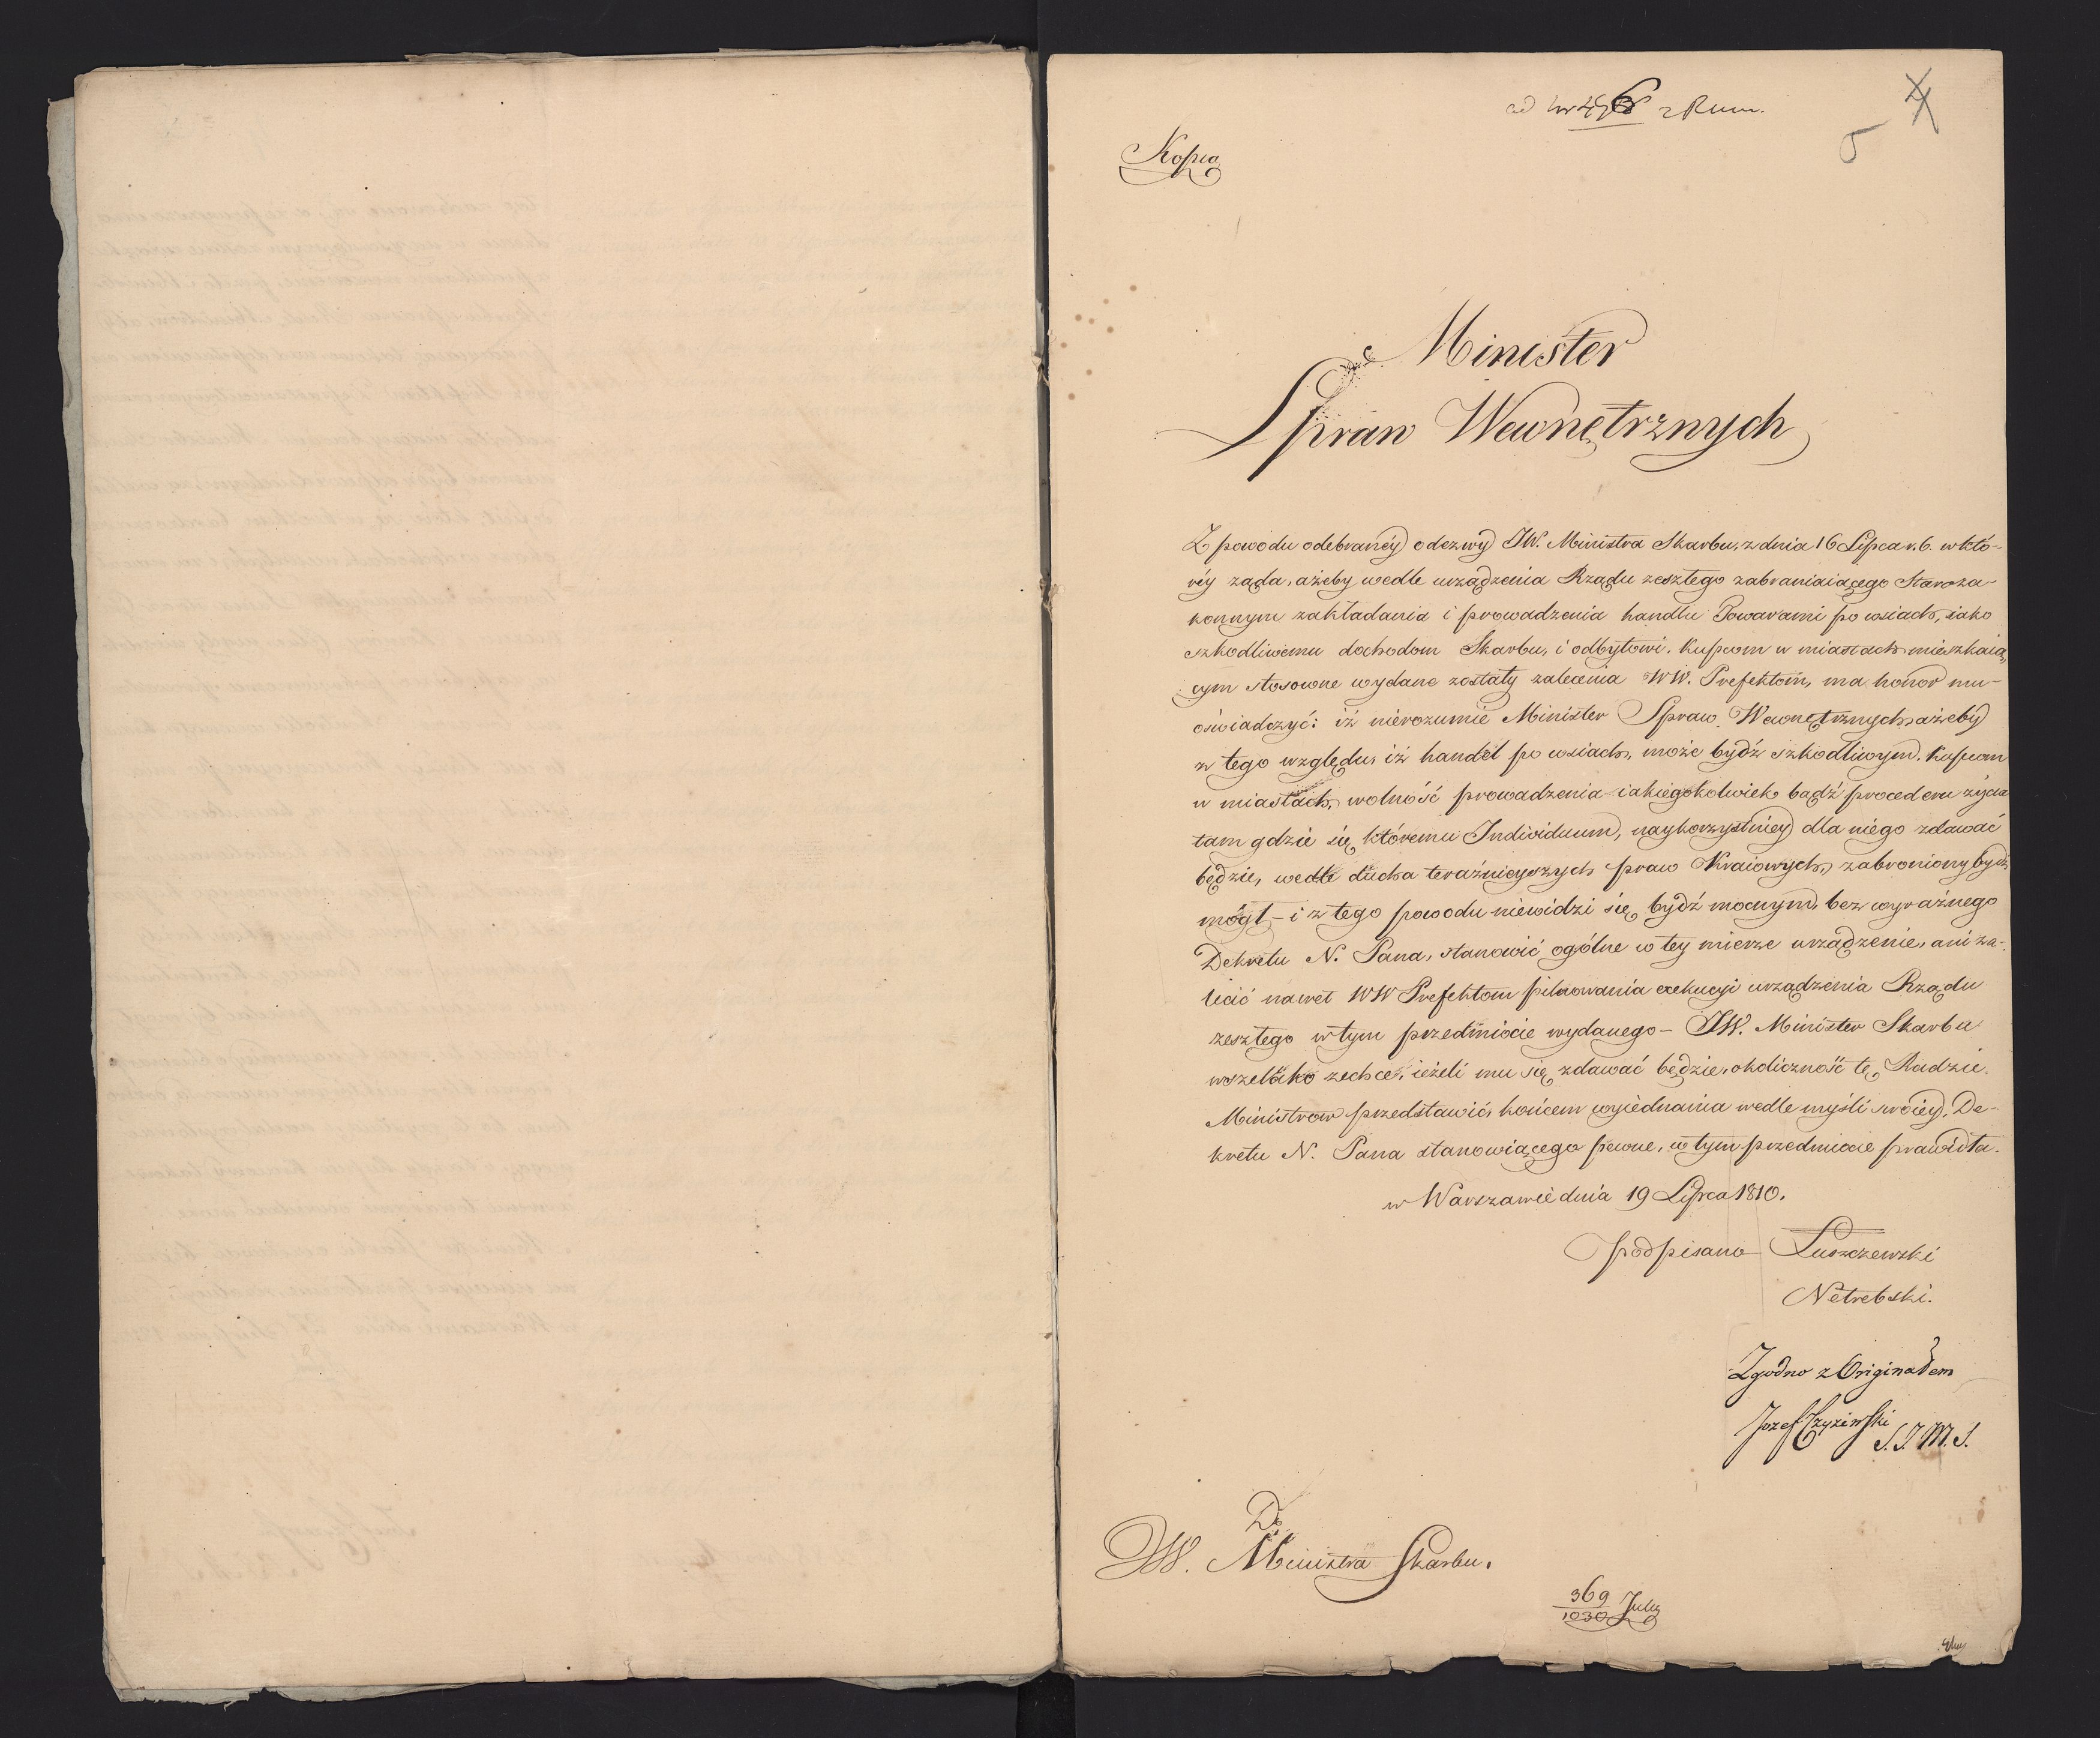 5
Kopia
Minister
Spraw Wewnętrznych
Z powodu odebranéy odezwy JW. Ministra Skarbu, z dnia 16 Lipca r. b. w któ-
réy żąda, ażeby wedle urządzenia Rządu zeszłego zabraniaiącego Staroza-
konnym zakładania i prowadzenia handlu Towarami po wsiach, iako
szkodliwemu dochodom Skarbu, i odbytowi, Kupcom w miastach mieszkaią,
cym stosowne wydane zostały zalecenia WW. Prefektom, ma honor mu-
oświadczyć: iż nierozumie Minister Spraw Wewnętrznych, ażeby
z tego względu, iż handel po wsiach, może bydź szkodliwym, Kupcom
w miastach, wolność prowadzenia iakiegokolwiek bądź procederu życia
tam gdzie się któremu Individuum, naykorzystniey dla niego zdawać
będzie, wedle ducha teraźnieyszych praw Kraiowych, zabroniony bydź
mógł – i z tego powodu niewidzi się bydź mocnym, bez wyraźnego
Dekretu N. Pana, stanowić ogólne w tey mierze urządzenie, ani za-
lecić nawet WW Prefektom pilnowania exekucyi urządzenia Rządu
zeszłego w tym przedmiocie wydanego – JW. Minister Skarbu
wszelako zechce, ieżeli mu się zdawać będzie, okoliczność tę Radzie
Ministrow przedstawić, końcem wyiednania wedle myśli swoiey, De-
kretu N. Pana stanowiącego pewne, w tym przedmiocie prawidła.
w Warszawie dnia 19 Lipca 1810.
podpisano Łuszczewski
Netrebski.
Zgodno z Originałem
Jozef Czyżewski
S. J. M. S.
Do
JW. Ministra Skarbu.
369
1030 July